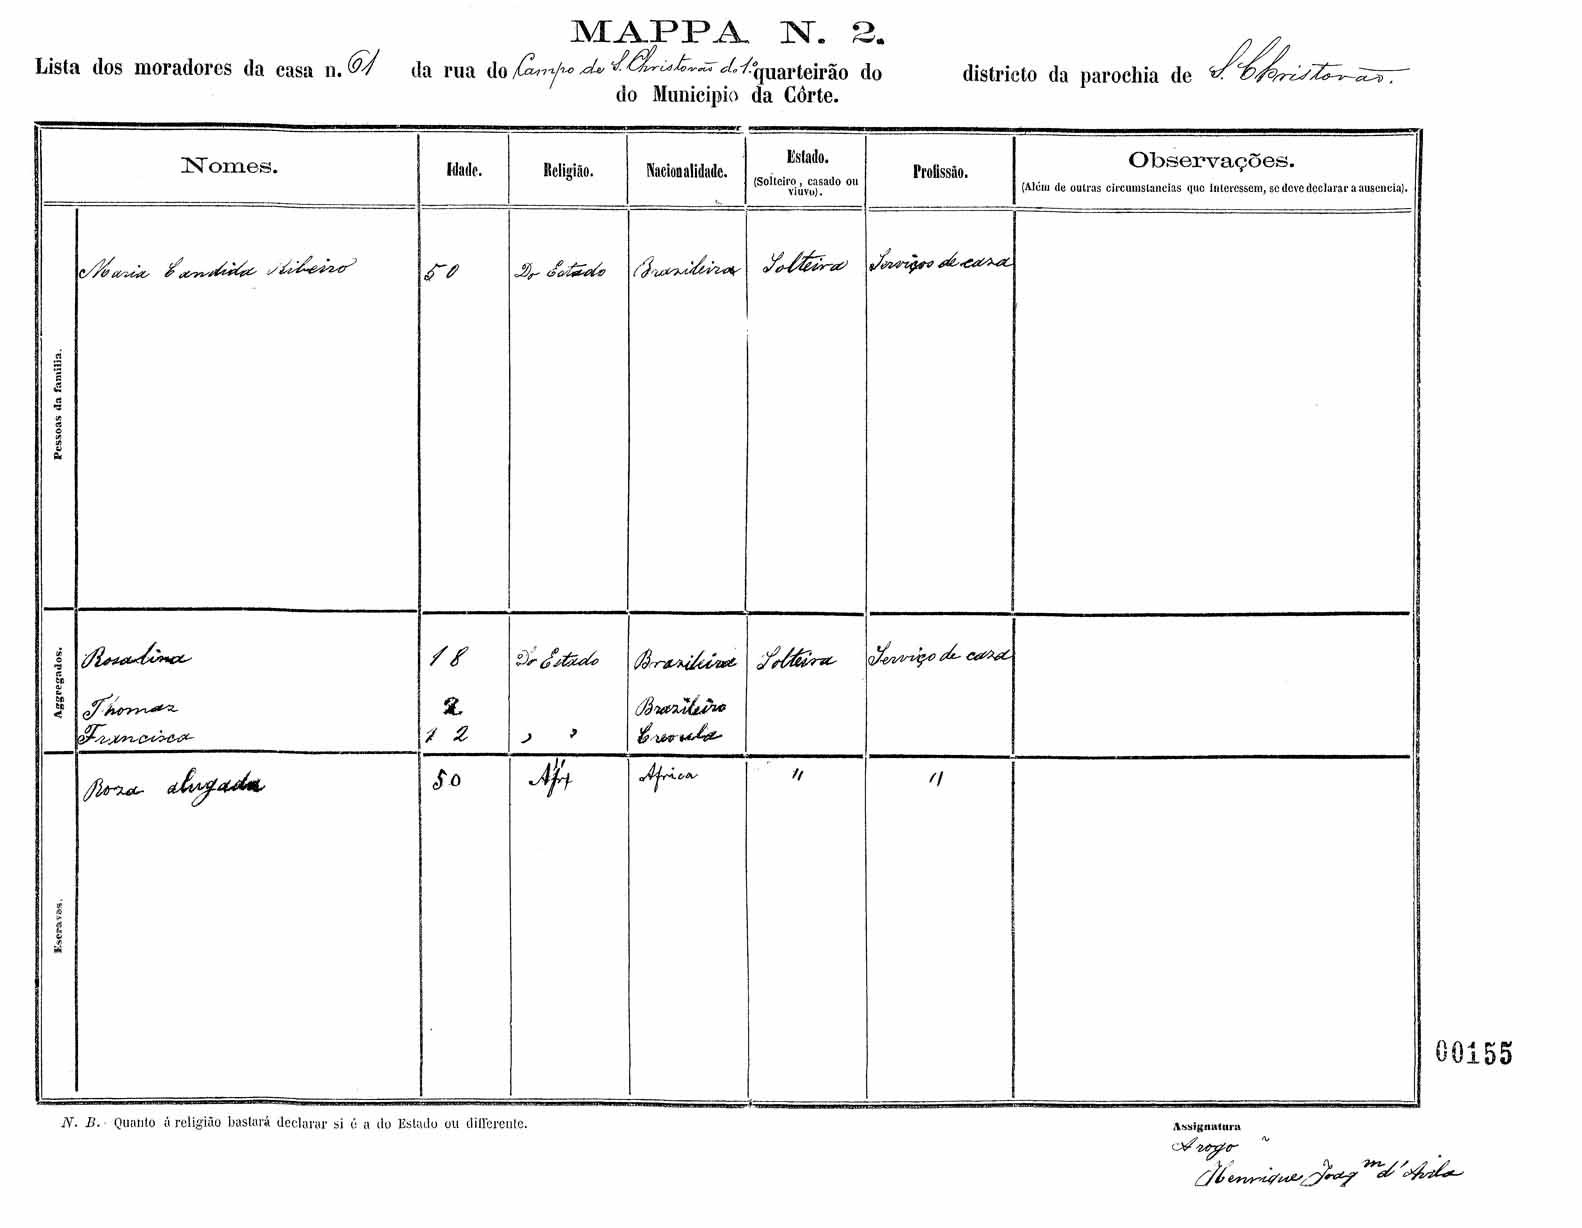 MAPPA N. 2.
Lista dos moradores da casa n. 61 da rua do Campo de S. Christovão do 1.º quarteirão do districto da parochia de S. Christovão.
do Municipio da Côrte.
Nomes. Idade. Religião. Nacionalidade. Estado. (Solteiro, casado ou viuvo). Profissão. Observações. (Além de outras circumstancias que interessem, se deve declarar a ausencia).
Pessoas da familia.
Maria Candida Ribeiro 50 Do Estado Brazileira Solteira Serviços de caza
Aggregados.
Rosalina 18 Do Estado Brazileira Solteira Serviço de caza
Thomaz 2 Brazileiro
Francisca 12 " " Creoula
Escravos.
Roza alugada 50 Africa " "
00155
N. B. - Quanto á religião bastará declarar si é a do Estado ou differente.
Assignatura
Arogo
Henrique Joaqm d'Avila